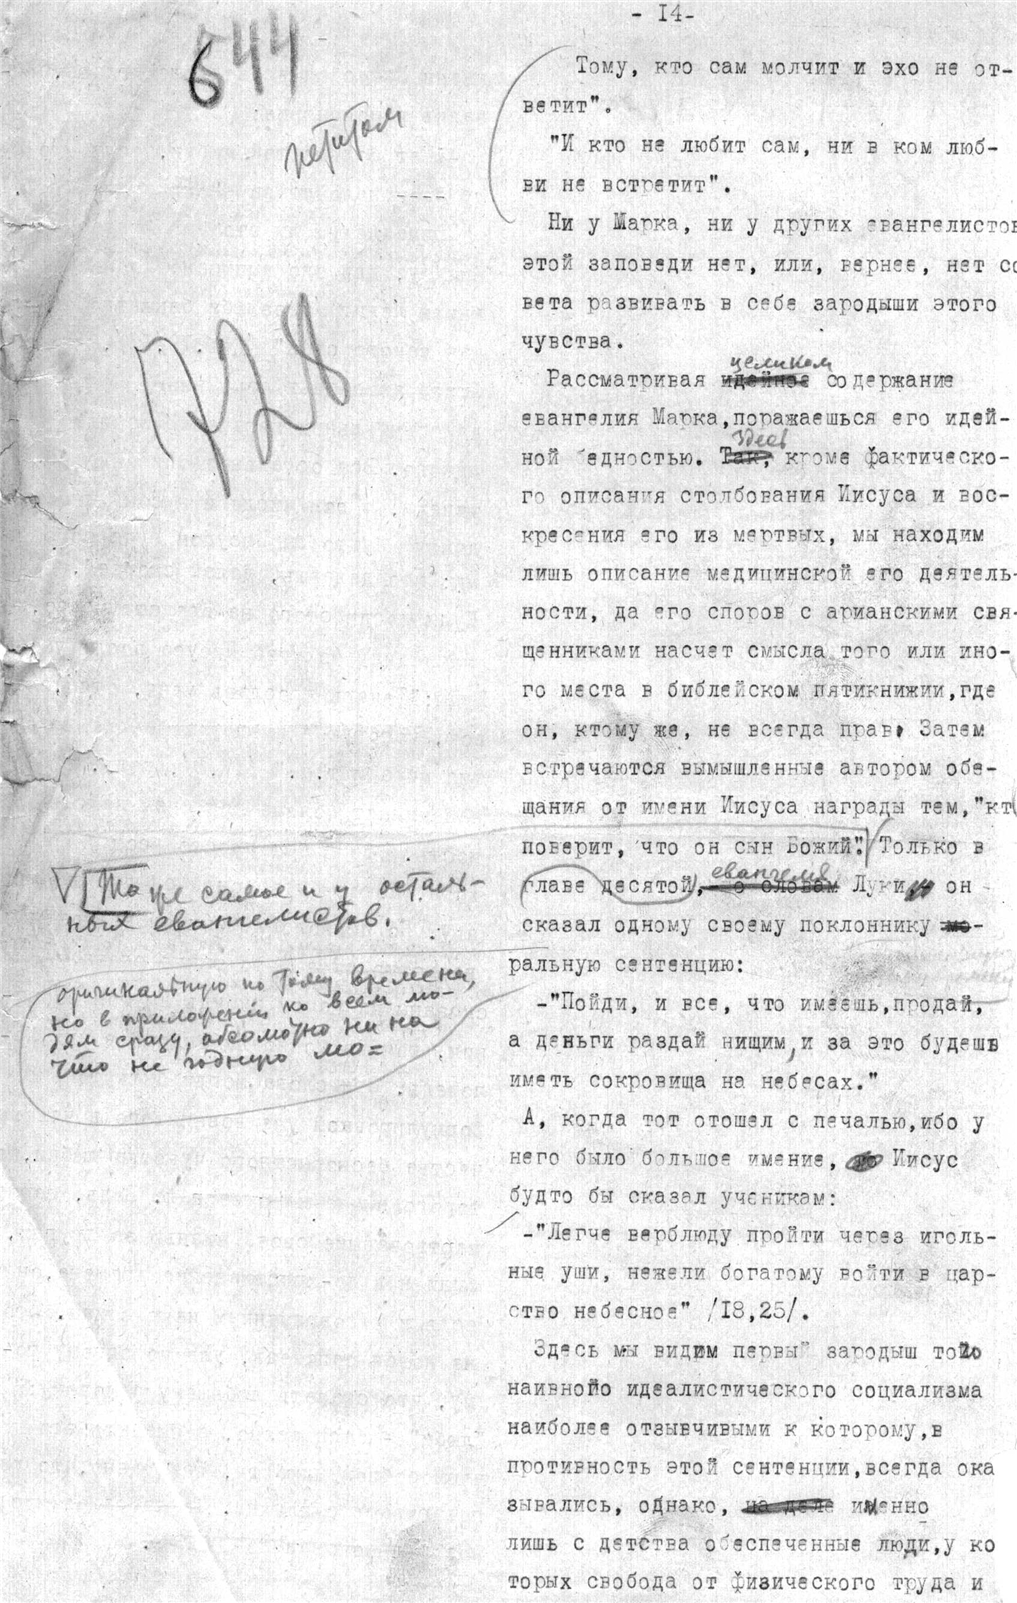 - I4-
644
петитом
Тому, кто сам молчит и эхо не от-
ветит".
"И кто не любит сам, ни в ком люб-
ви не встретит".
Ни у Марка, ни у других евангелистов
этой заповеди нет, или, вернее, нет со
вета развивать в себе зародыши этого
чувства.
728
целиком
Рассматривая идейное содержание
евангелия Марка,поражаешься его идей-
Здесь
ной бедностью. Так, кроме фактическо-
го описания столбования Иисуса и вос-
кресения его из мертвых, мы находим
лишь описание медицинской его деятель-
ности, да его споров с арианскими свя-
щенниками насчет смысла того или ино-
го места в библейском пятикнижии,где
он, ктому же, не всегда прав. Затем
встречаются вымышленные автором обе-
щания от имени Иисуса награды тем,"кт
поверит, что он сын Божий". Только в
евангелия
главе десятой, о словам Луки, он
сказал одному своему поклоннику мо-
ральную сентенцию:
То же самое и у осталь-
ных евангелистов.
оригинальную по тому времени,
но в приложении ко всем лю-
дям сразу, абсолютно ни на
что не годную мо=
-"Пойди, и все, что имеешь,продай,
а деньги раздай нищим, и за это будешь
иметь сокровища на небесах."
А, когда тот отошел с печалью,ибо у
него было большое имение, Иисус
будто бы сказал ученикам:
-"Легче верблюду пройти через иголь-
ные уши, нежели богатому войти в цар-
ство небесное" /I8,25/.
Здесь мы видим первый зародыш того
наивного идеалистического социализма
наиболее отзывчивыми к которому,в
противность этой сентенции,всегда ока
зывались, однако, на деле именно
лишь с детства обеспеченные люди,у ко
торых свобода от физического труда и